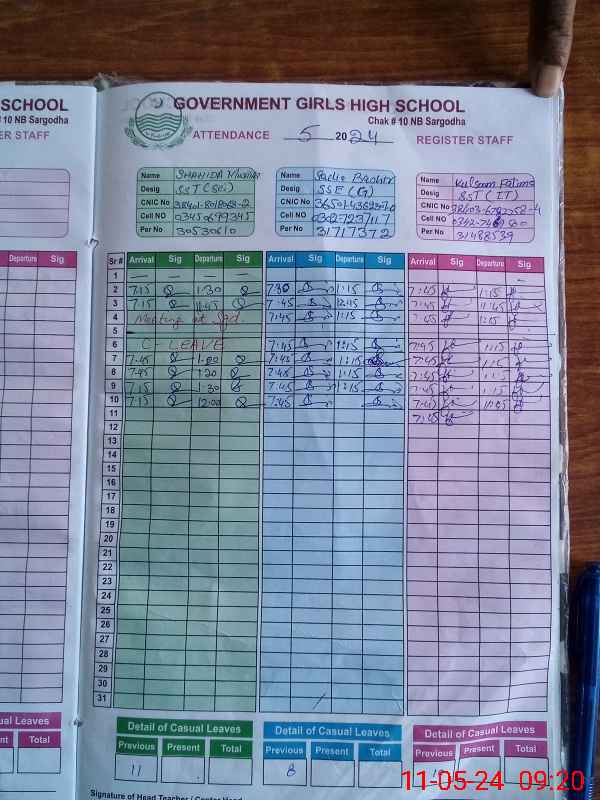 SCHOOL
# 10 NB Sargodha
ER STAFF
Departure Sig
ual Leaves
nt Total
GOVERNMENT GIRLS HIGH SCHOOL
Chak # 10 NB Sargodha
ATTENDANCE 5 2024 REGISTER STAFF
Name SHAHIDA
Desig SST (Sci)
CNIC No
Cell NO
Per No 30530610
Name Bashir
Desig SSE (G)
CNIC No
Cell NO
Per No 31717372
Name Kulsoom Fatima
Desig SST (IT)
CNIC No
Cell NO
Per No 31488539
Sr # Arrival Sig Departure Sig Arrival Sig Departure Sig Arrival Sig Departure Sig
1 — — — —
2 7:15 1:30 7:30 1:15 7:45 1:15
3 7:15 11:45 7:45 12:45 7:45 11:45
4 Meeting at Sgd. 7:45 1:15 7:45 1:15
5
6 C-LEAVE 7:45 1:15 7:45 1:15
7 7:45 1:00 7:45 1:15 7:45 1:15
8 7:45 1:30 7:45 1:15 7:45
9 7:15 1:30 7:45 1:15 7:45 1:15
10 7:15 12:00 7:45 7:45 11:45
11 7:45
12
13
14
15
16
17
18
19
20
21
22
23
24
25
26
27
28
29
30
31
Detail of Casual Leaves Detail of Casual Leaves Detail of Casual Leaves
Previous Present Total Previous Present Total Previous Present Total
11 8
Signature of Head Teacher / Center Head
11-05-24 09:20